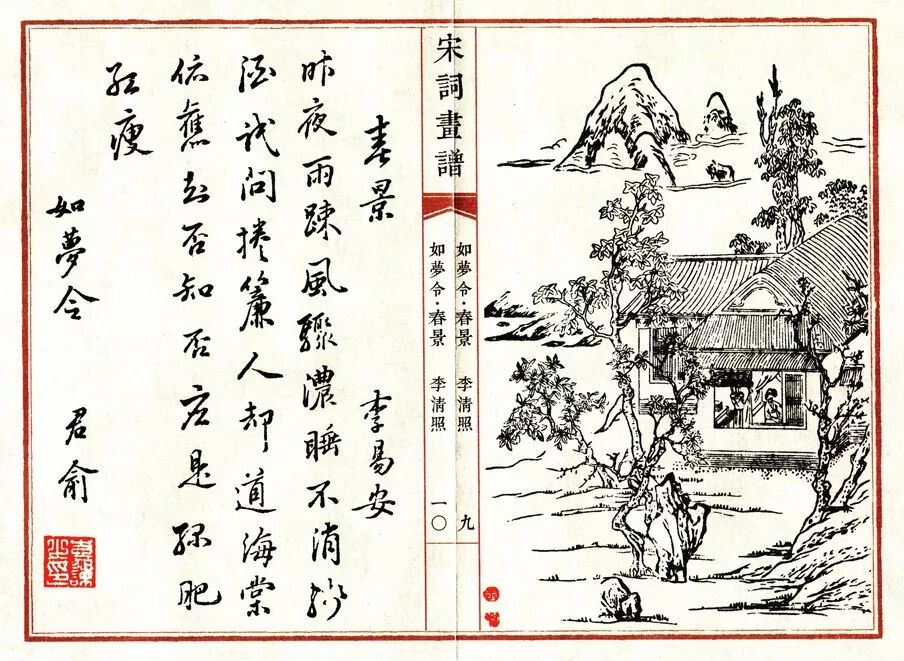 宋詞畫譜
如夢令·春景 李清照 九
如夢令·春景 李清照 一〇
春景 李易安
昨夜雨踈風驟濃睡不消殘
酒試問捲簾人却道海棠
依舊知否知否应是綠肥
紅瘦
如夢令 君俞